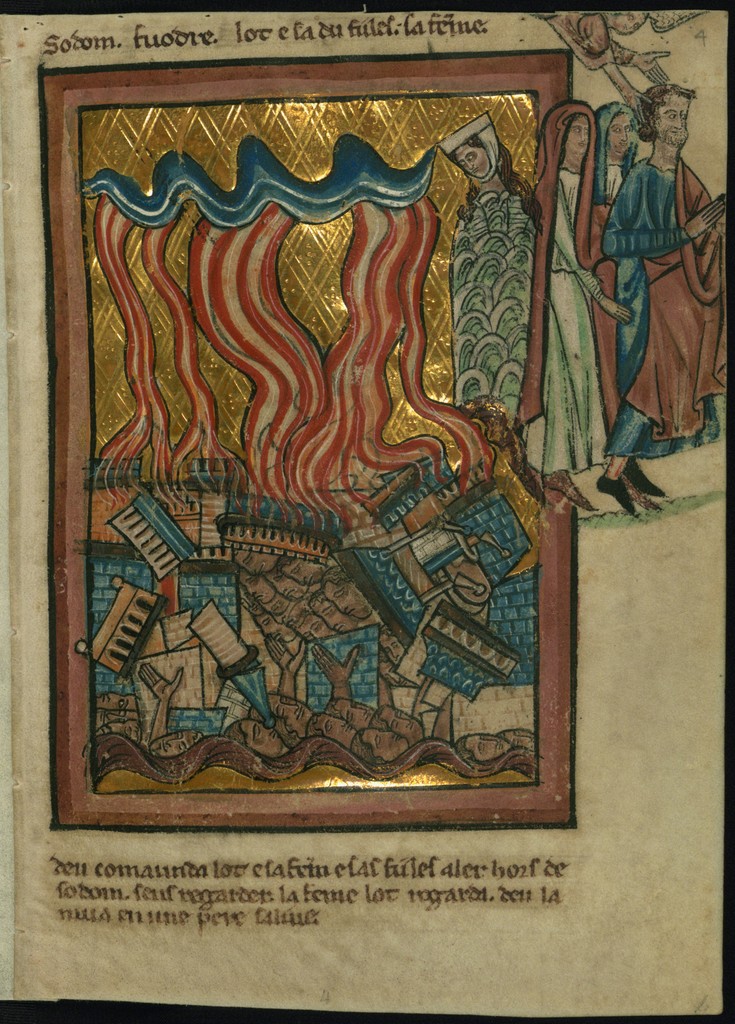 Sodom. fuodre. lot e sa du fules. sa feme.
4
deu comaunda lot e sa fem e sas fules aler hors de
sodom. sens regarder. la feme lot regarda. deu la
mua en une pere salius.
4